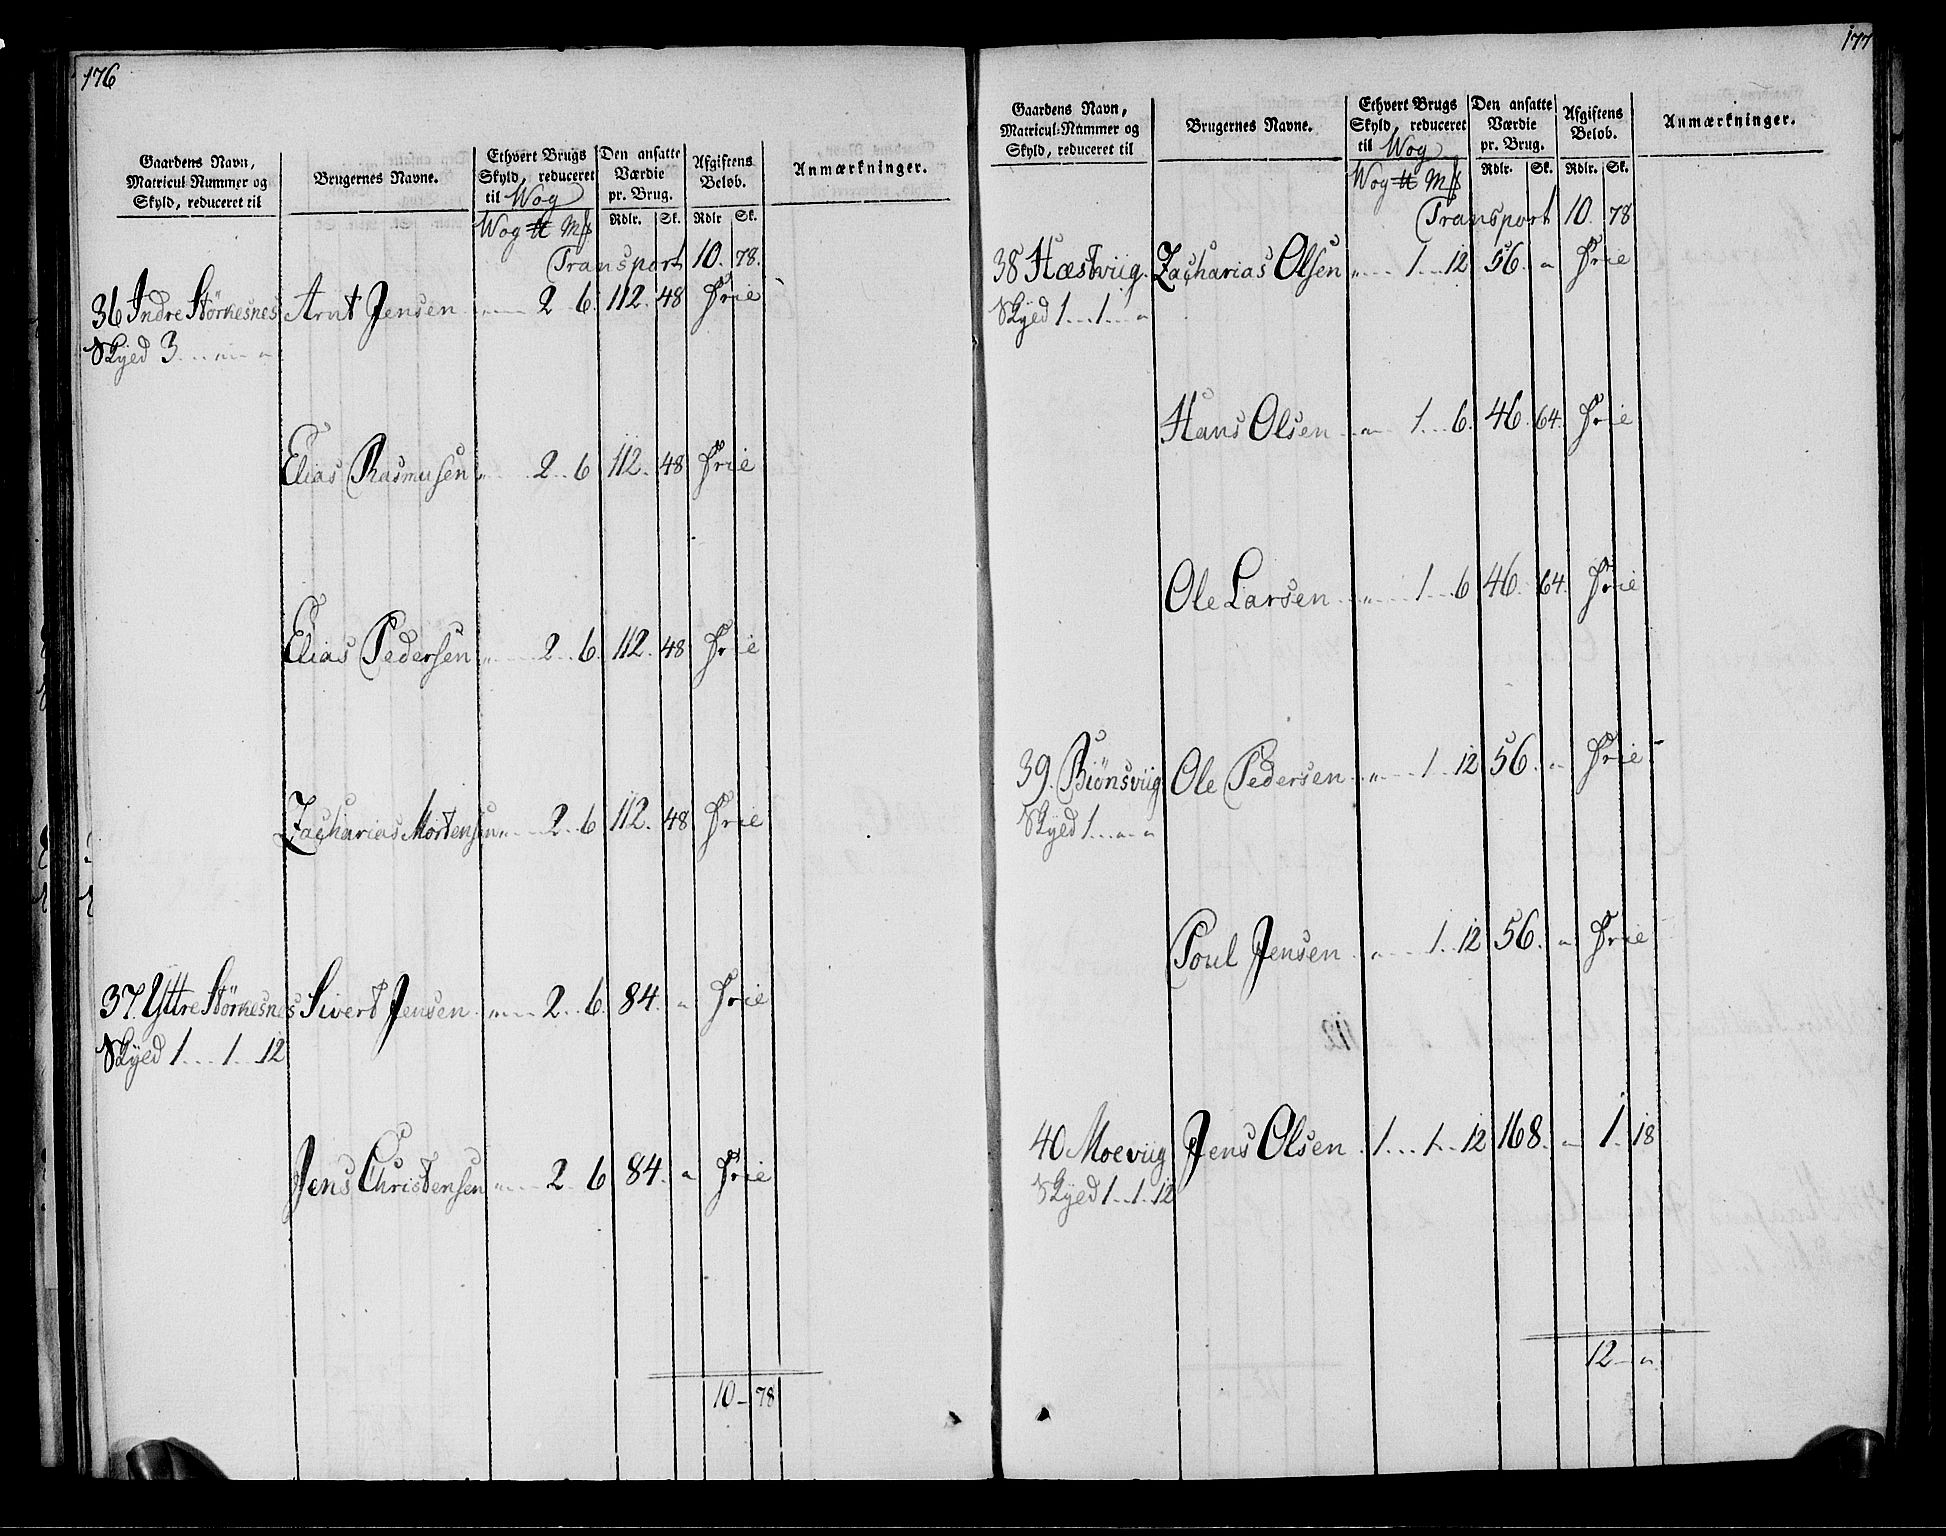 176
Gaardens Navn,
Matricul-Nummer og
Skyld, reduceret til
Brugernes Navne.
Ethvert Brugs
Skyld, reduceret
til Wog
Wog ℔ Mk
Den ansatte
Værdie
pr. Brug.
Rdlr. Sk.
Afgiftens
Beløb.
Rdlr Sk.
Anmærkninger.
Transport 10. 78.
36 Indre Störkesnes Arnt Jensen " 2 6 112. 48 Frie
Skyed 3 " "
Elias Rasmusen " 2 6 112. 48 Frie
Elias Pedersen " 2 6. 112. 48 Frie
Zacharias Mortensen " 2 6 112. 48 Frie
37. Yttre Störkesnes Sivert Jensen " 2 6. 84. " Frie
Skyed 1 1 12
Jens Christensen " 2 6 84. " Frie
10 78
177
Gaardens Navn,
Matricul-Nummer og
Skyld, reduceret til
Brugernes Navne.
Ethvert Brugs
Skyld, reduceret
til Wog
Wog ℔ Mk
Den ansatte
Værdie
pr. Brug.
Rdlr. Sk.
Afgiftens
Beløb.
Rdlr. Sk.
Anmærkninger.
Transport 10. 78
38 Hæstviig. Zacharias Olsen " 1 12 56. " Frie
Skyed 1 1 "
Hans Olsen " 1 6. 46. 64. Frie
Ole Larsen " 1 6 46. 64. Frie
39. Biönsviig Ole Pedersen " 1 12 56. " Frie
Skyed 1 " "
Poul Jensen " 1 12 56. " Frie
40 Moeviig Jens Olsen 1 1 12 168. " 1. 18
Skyed 1 1 12
12 "